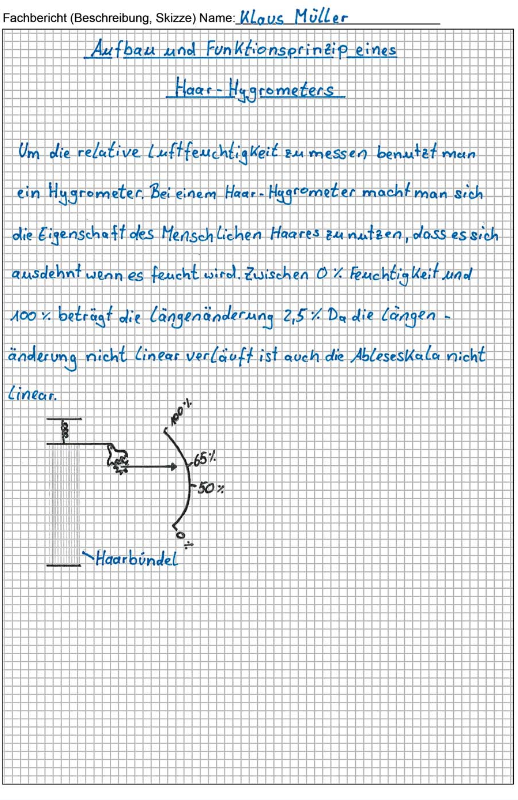 Fachbericht (Beschreibung, Skizze) Name: Klaus Müller
Aufbau und Funktionsprinzip eines
Haar-Hygrometers
Um die relative Luftfeuchtigkeit zu messen benutzt man
ein Hygrometer. Bei einem Haar-Hygrometer macht man sich
die Eigenschaft des Menschlichen Haares zu nutzen, dass es sich
ausdehnt wenn es feucht wird. Zwischen 0 % Feuchtigkeit und
100 % beträgt die Längenänderung 2,5 % Da die Längen-
änderung nicht Linear verläuft ist auch die Ableseskala nicht
Linear.
100 %
65 %
50 %
0 %
Haarbündel